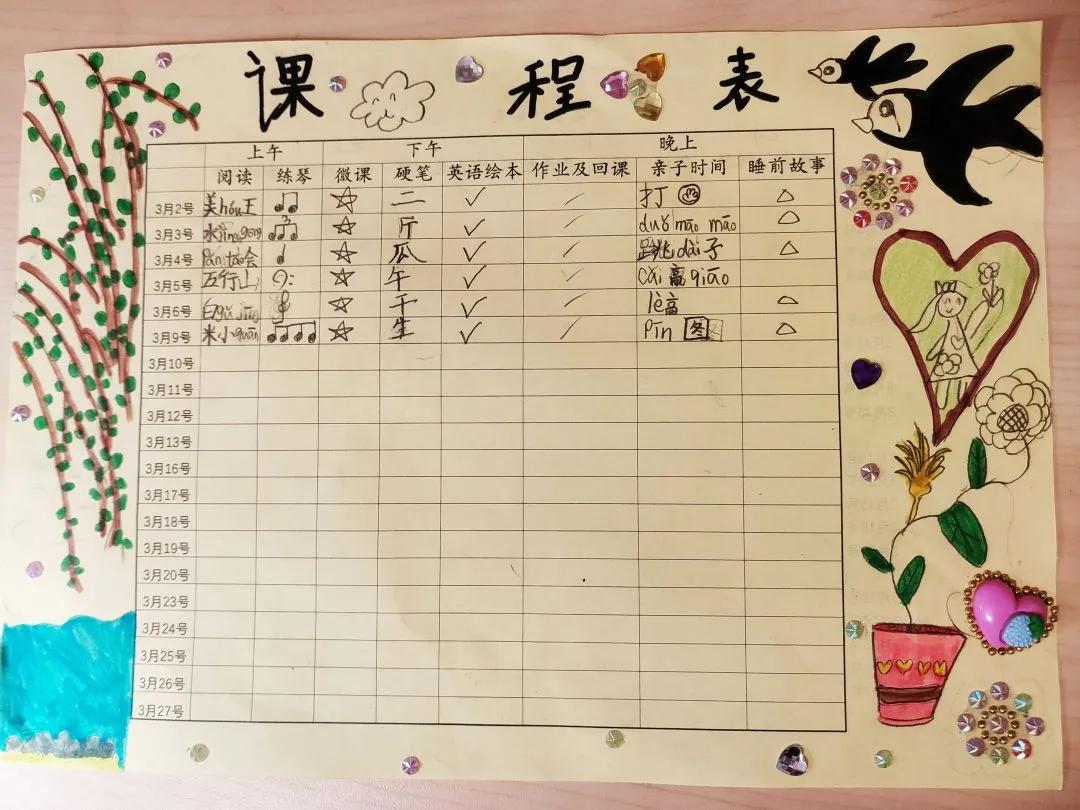 课程表
上午 下午 晚上
阅读 练琴 微课 硬笔 英语绘本 作业及回课 亲子时间 睡前故事
3月2号 美hóu王 二 打
3月3号 水jīng gōng 斤 duǒ māo māo
3月4号 pán táo会 瓜 跳dài子
3月5号 五行山 午 cǎi高qiāo
3月6号 白gǔ jīng 干 lè高
3月9号 米小quān 生 Pīn 图
3月10号
3月11号
3月12号
3月13号
3月16号
3月17号
3月18号
3月19号
3月20号
3月23号
3月24号
3月25号
3月26号
3月27号